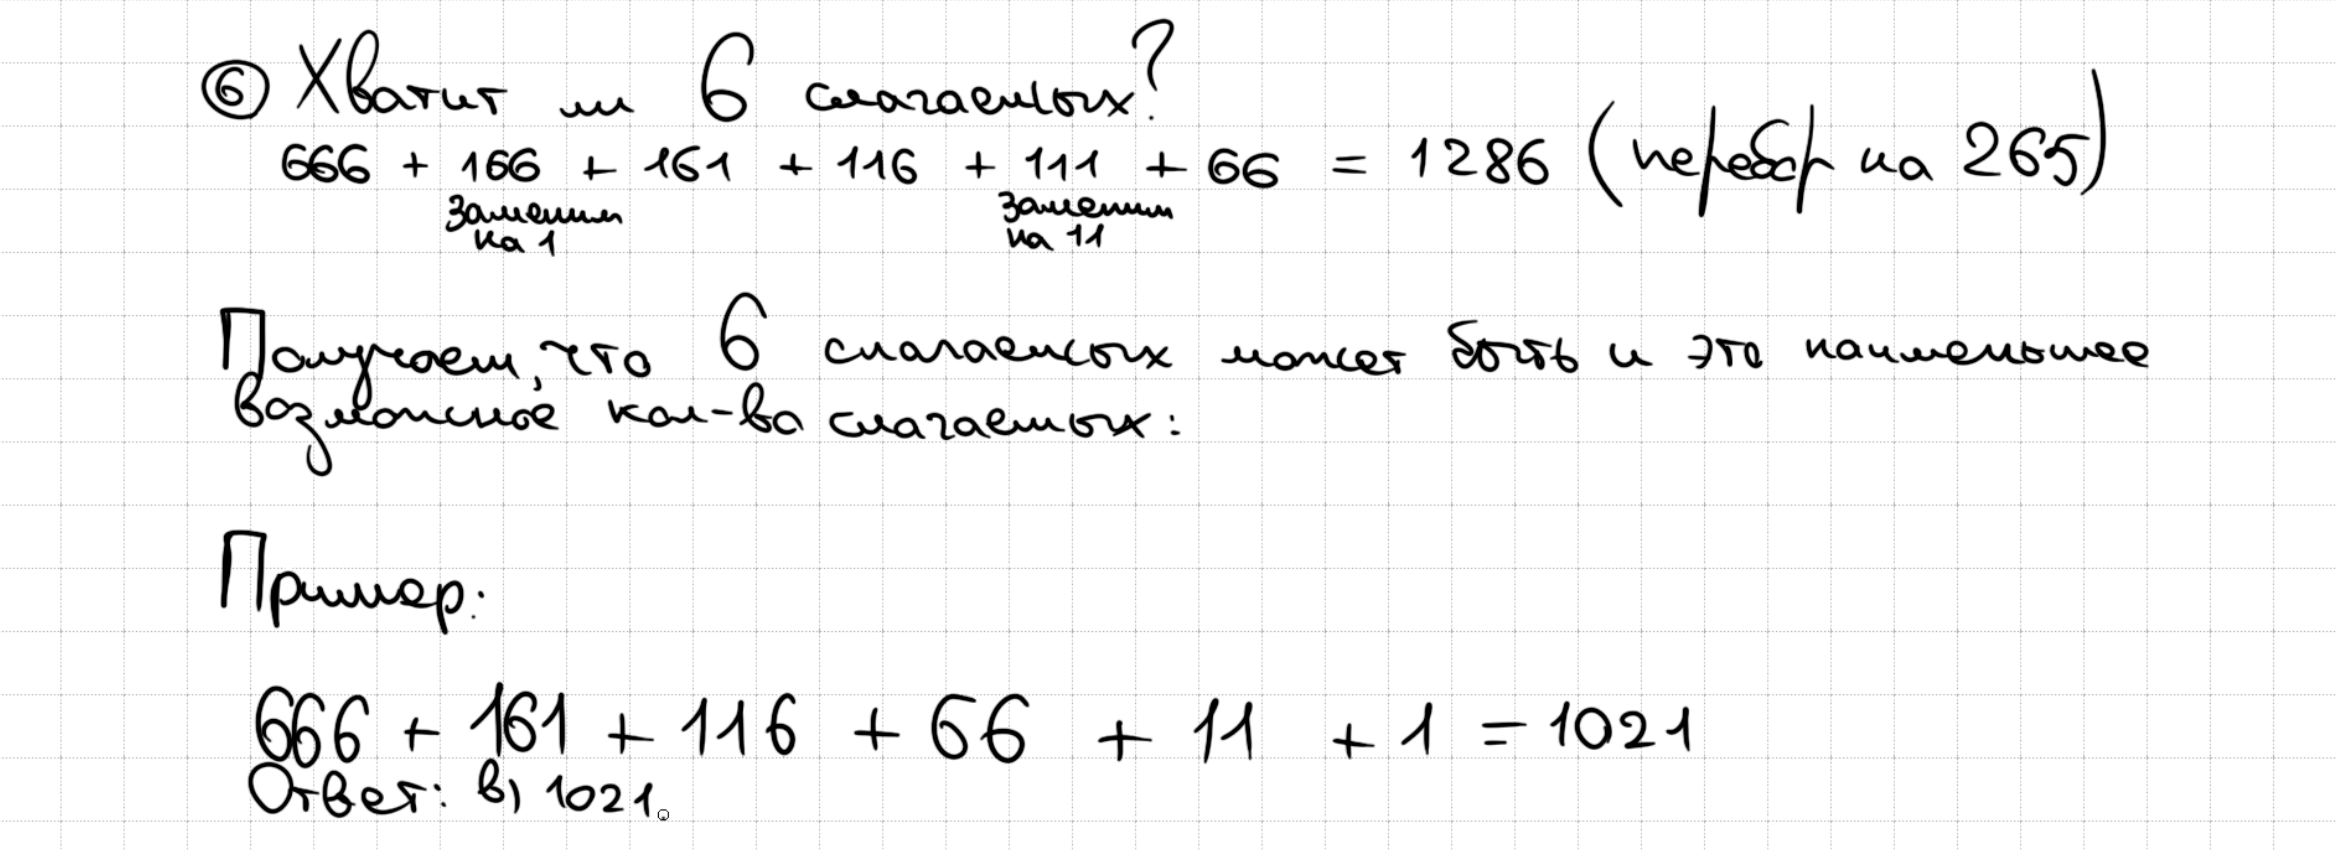 ⑥ Хватит ли 6 слагаемых?
666 + 166 + 161 + 116 + 111 + 66 = 1286 (перебор на 265)
Заменим на 1
Заменим на 11
Получаем, что 6 слагаемых может быть и это наименьшее
возможное кол-во слагаемых:
Пример:
666 + 161 + 116 + 66 + 11 + 1 = 1021
Ответ: в) 1021.